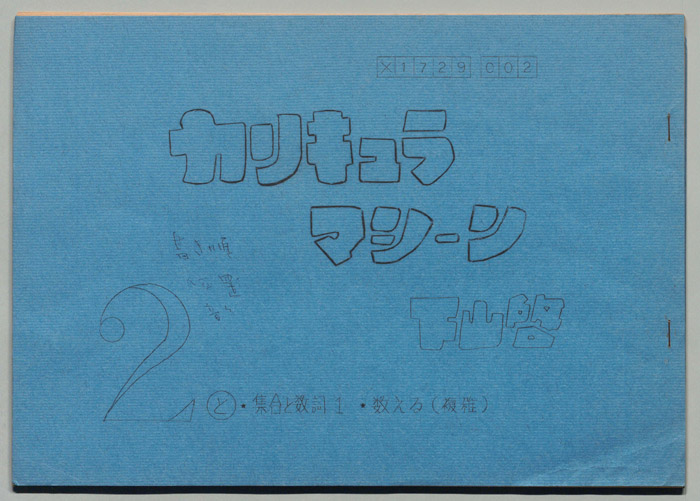 X1729 002
カリキュラ
マシーン
書き順
位置
下山啓
2 ㋣・集合と数詞1 ・数える(複雑)